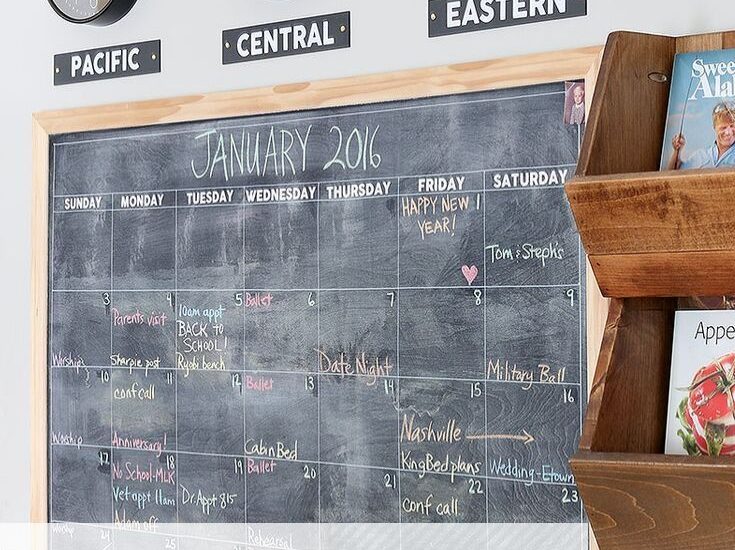 PACIFIC CENTRAL EASTERN
JANUARY 2016
SUNDAY MONDAY TUESDAY WEDNESDAY THURSDAY FRIDAY SATURDAY
HAPPY NEW 1
YEAR!
Tom & Steph's
3 4 5 6 7 8 9
Parents visit
10am appt
BACK to
SCHOOL!
Ballet
Worship
Sharpie post
Ryobi bench
Date Night
Military Ball
10 11 12 13 14 15 16
conf call
Ballet
Nashville
Worship
Anniversary!
Cabin Bed
King Bed plans
Wedding-Etown
17 18 19 20 21 22 23
No School-MLK
Vet appt 11am
Dr. Appt 815
Ballet
conf call
Adam off
Worship
Rehearsal
24 25
Appe